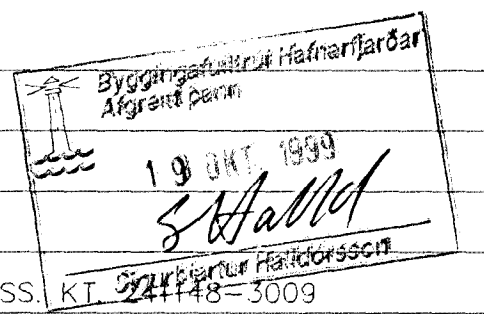 Byggingafulltrúi Hafnarfjarðar
Afgreitt þann
19 OKT. 1999
S Halld
Sigurbjartur Halldórsson
SS. KT. 241148-3009